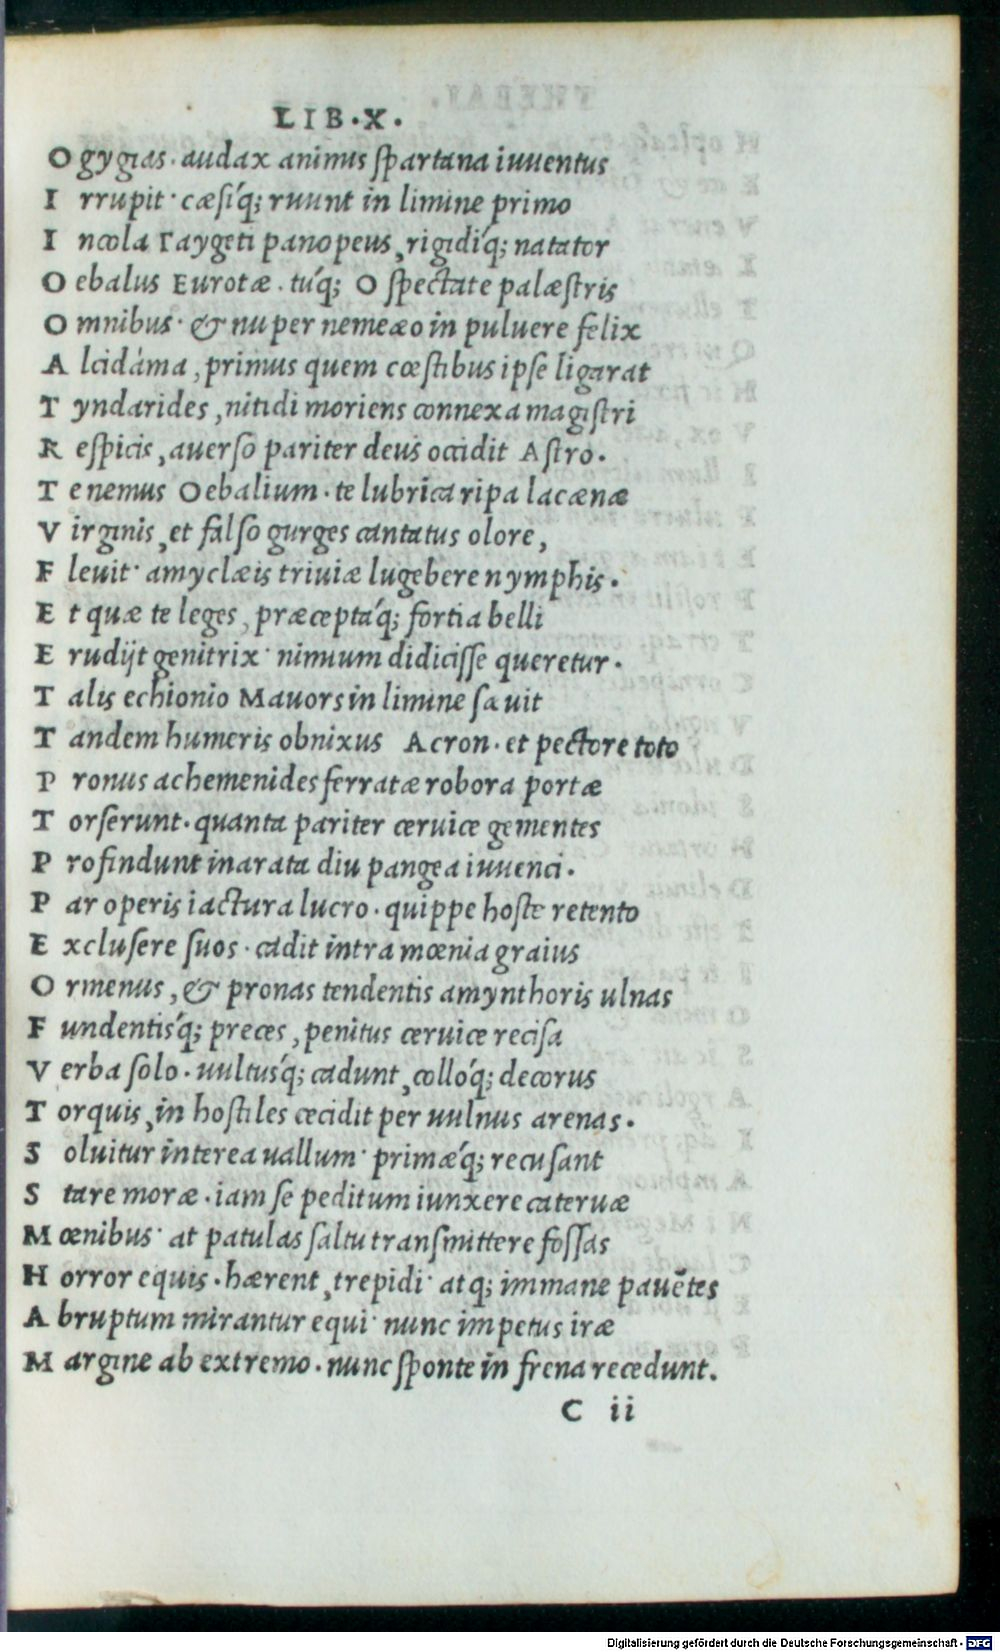 LIB·X·
O gygias· audax animus spartana iuuentus
I rrupit· cæsíq; ruunt in limine primo
I ncola Taygeti panopeus, rigidíq; natator
O ebalus Eurotæ· túq; O spectate palæstris
O mnibus· & nuper nemeæo in puluere felix
A lcidáma, primus quem cœstibus ipse ligarat
T yndarides, nitidi moriens connexa magistri
R espicis, auerso pariter deus occidit Astro.
T e nemus Oebalium· te lubrica ripa lacænæ
V irginis, et falso gurges cantatus olore,
F leuit· amyclæis triuiæ lugebere nymphis.
E t quæ te leges, præceptáq; fortia belli
E rudijt genitrix· nimium didicisse queretur.
T alis echionio Mauors in limine sæuit
T andem humeris obnixus Acron· et pectore toto
P ronus achemenides ferratæ robora portæ
T orserunt· quanta pariter ceruice gementes
P rofindunt inarata diu pangea iuuenci.
P ar operis iactura lucro· quippe hoste retento
E xclusere suos· cadit intra mœnia graius
O rmenus, & pronas tendentis amynthoris ulnas
F undentisq́; preces, penitus ceruice recisa
V erba solo· uultusq́; cadunt, collóq; decorus
T orquis, in hostiles cecidit per uulnus arenas.
S oluitur interea uallum· primæq́; recusant
S tare moræ· iam se peditum iunxere cateruæ
M œnibus· at patulas saltu transmittere fossas
H orror equis· hærent, trepidi· atq; immane pauẽtes
A bruptum mirantur equi· nunc impetus iræ
M argine ab extremo· nunc sponte in frena recedunt.
C ii
Digitalisierung gefördert durch die Deutsche Forschungsgemeinschaft - DFG